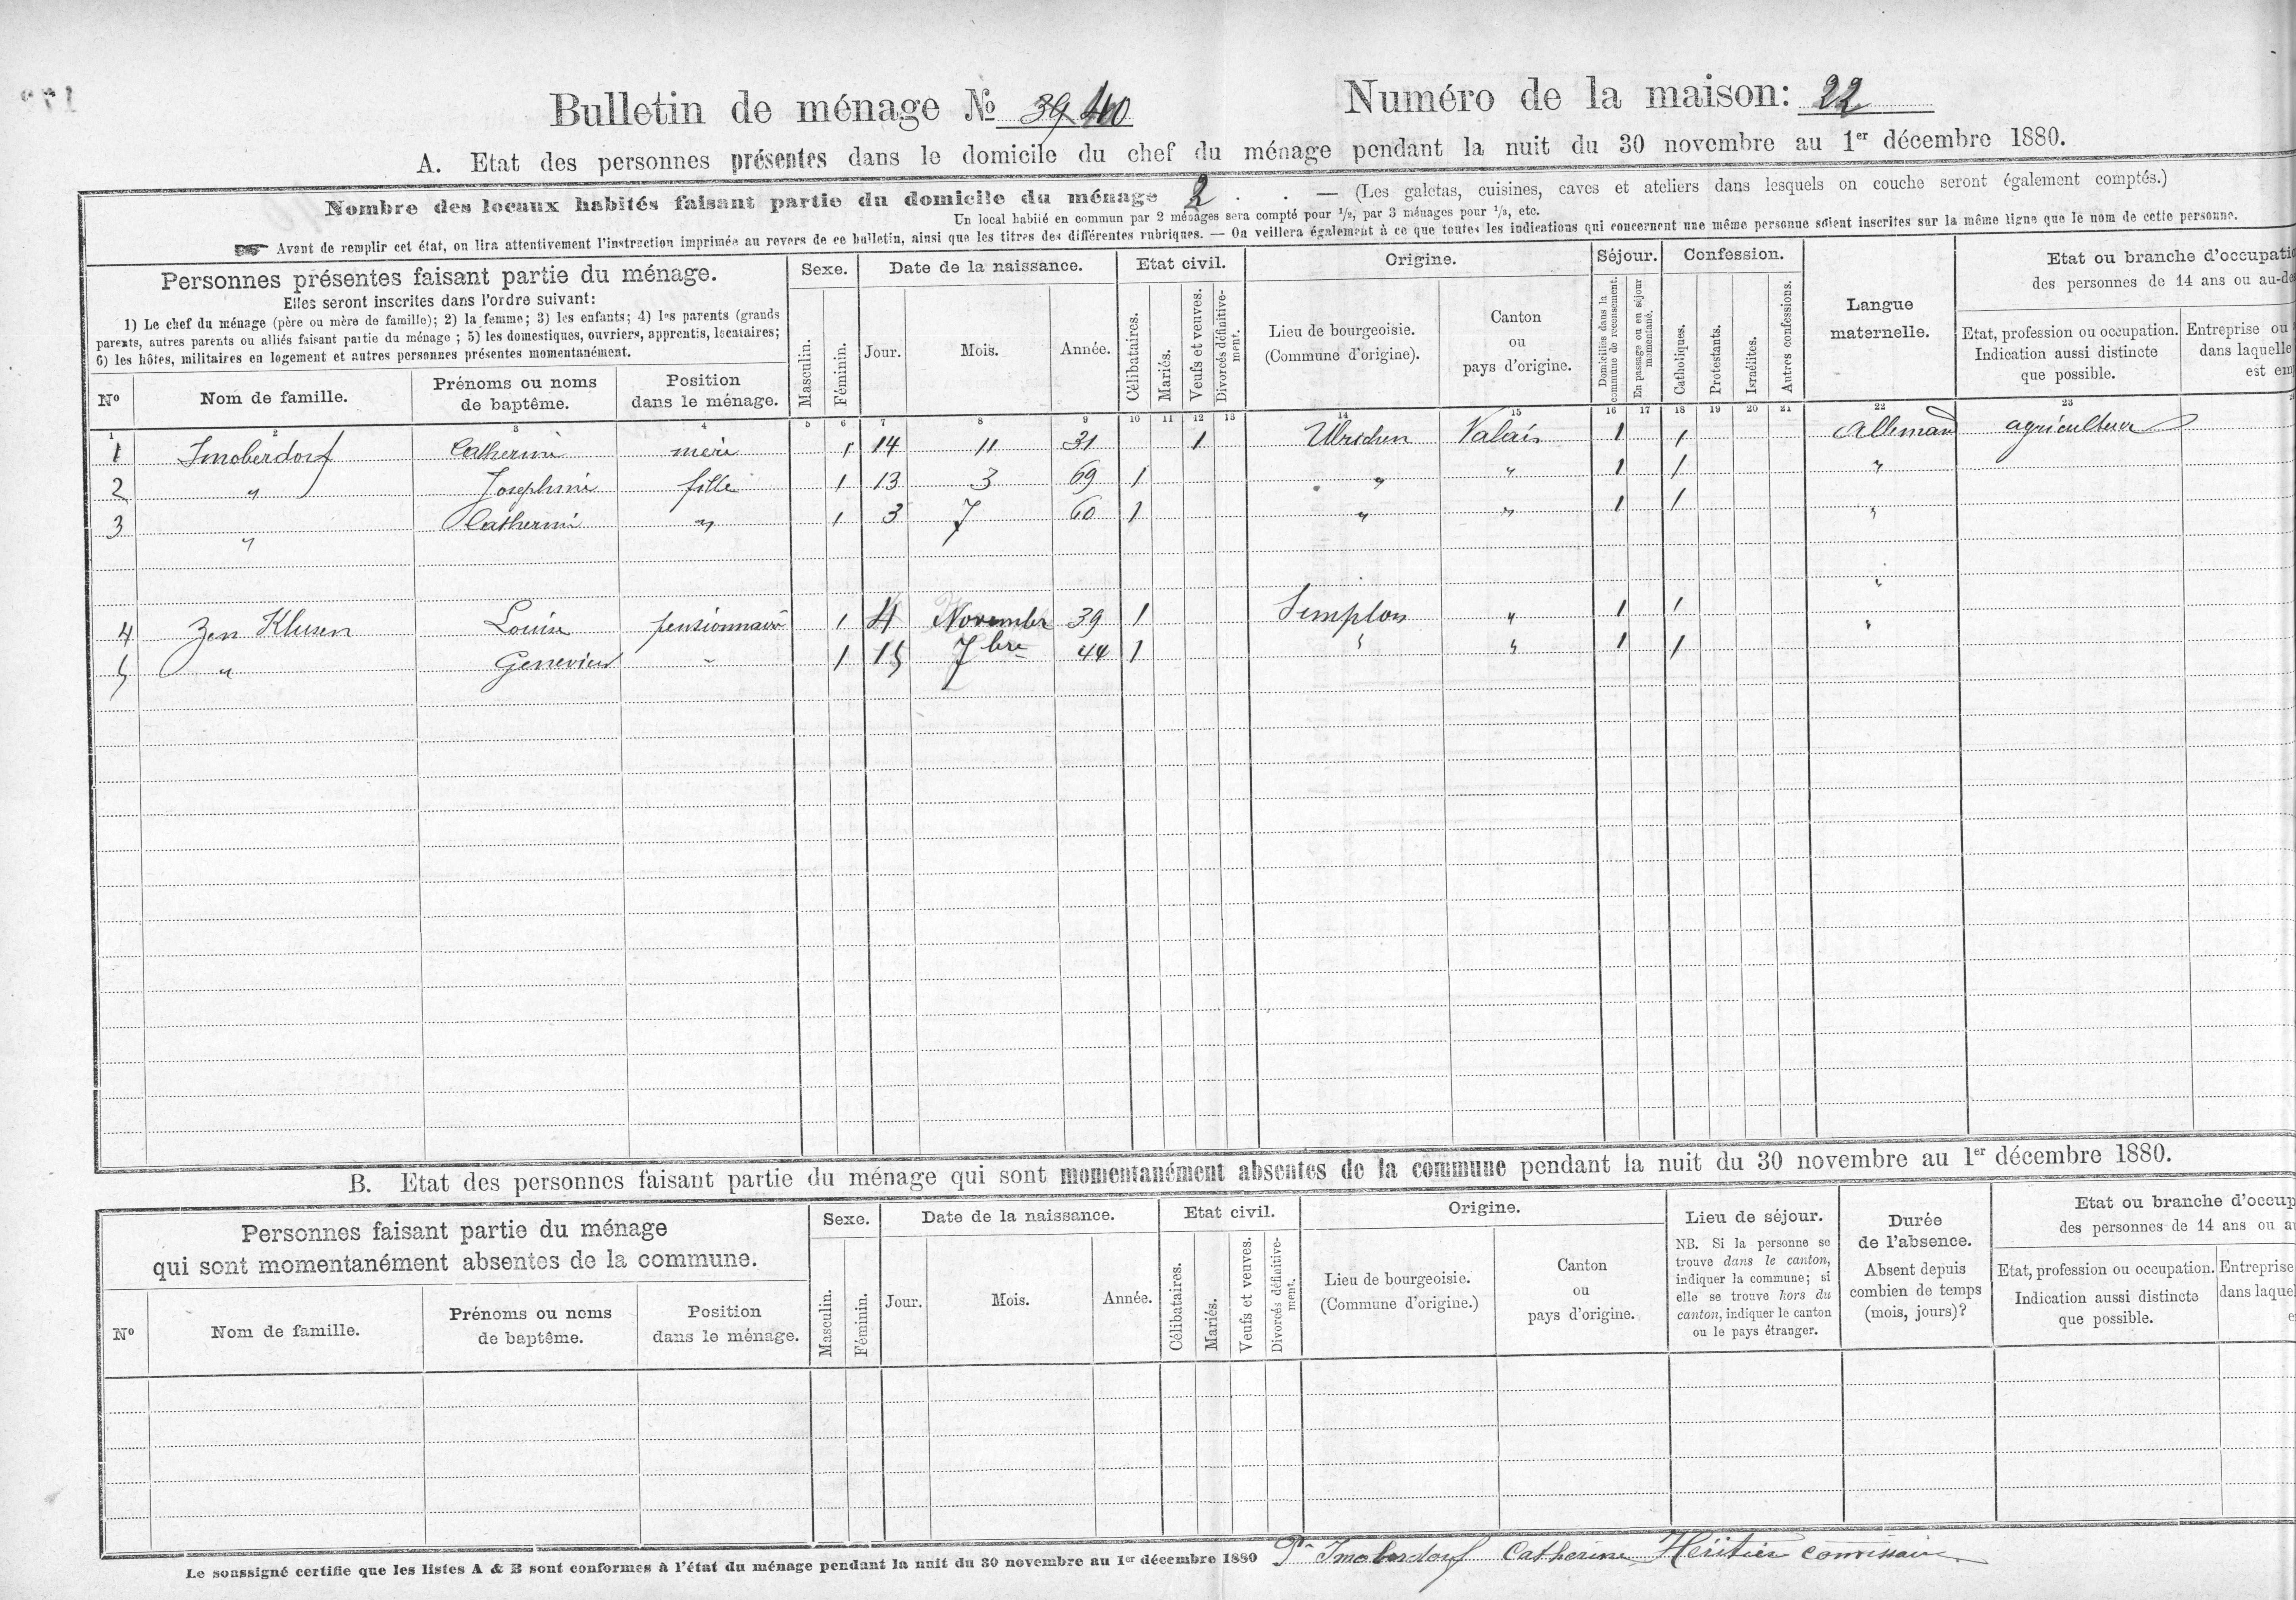 Bulletin de ménage № 39 40
Numéro de la maison: 22
A. Etat des personnes présentes dans le domicile du chef du ménage pendant la nuit du 30 novembre au 1er décembre 1880.
Nombre des locaux habités faisant partie du domicile du ménage 2. — (Les galetas, cuisines, caves et ateliers dans lesquels on couche seront également comptés.)
Un local habité en commun par 2 ménages sera compté pour 1/2, par 3 ménages pour 1/3, etc.
☞ Avant de remplir cet état, on lira attentivement l'instruction imprimée au revers de ce bulletin, ainsi que les titres des différentes rubriques. — On veillera également à ce que toutes les indications qui concernent une même personne soient inscrites sur la même ligne que le nom de cette personne.
Personnes présentes faisant partie du ménage.
Elles seront inscrites dans l'ordre suivant:
1) Le chef du ménage (père ou mère de famille); 2) la femme; 3) les enfants; 4) les parents (grands
parents, autres parents ou alliés faisant partie du ménage; 5) les domestiques, ouvriers, apprentis, locataires;
6) les hôtes, militaires en logement et autres personnes présentes momentanément.
Nº
Nom de famille.
Prénoms ou noms
de baptême.
Position
dans le ménage.
Sexe.
Masculin.
Féminin.
Date de la naissance.
Jour.
Mois.
Année.
Etat civil.
Célibataires.
Mariés.
Veufs et veuves.
Divorcés définitive-
ment.
Origine.
Lieu de bourgeoisie.
(Commune d'origine).
Canton
ou
pays d'origine.
Séjour.
Domiciliés dans la
commune de recensement.
En passage ou en séjour
momentané.
Confession.
Catholiques.
Protestants.
Israélites.
Autres confessions.
Langue
maternelle.
Etat ou branche d'occupati
des personnes de 14 ans ou au-de
Etat, profession ou occupation.
Indication aussi distincte
que possible.
Entreprise ou
dans laquelle
est em
1 2 3 4 5 6 7 8 9 10 11 12 13 14 15 16 17 18 19 20 21 22 23
1 Imoberdorf Catherine mère 1 14 11 31 1 Ulrichen Valais 1 1 Allemand agriculteur
2 " Josephine fille 1 13 3 69 1 " " 1 1 "
3 " Catherine " 1 3 7 60 1 " " 1 1 "
"
4 Zen Klusen Louise pensionnaire 1 4 Novembre 39 1 Simplon " 1 1 "
5 " Genevieve " 1 15 7bre 44 1 " " 1 1
B. Etat des personnes faisant partie du ménage qui sont momentanément absentes de la commune pendant la nuit du 30 novembre au 1er décembre 1880.
Personnes faisant partie du ménage
qui sont momentanément absentes de la commune.
Nº
Nom de famille.
Prénoms ou noms
de baptême.
Position
dans le ménage.
Sexe.
Masculin.
Féminin.
Date de la naissance.
Jour.
Mois.
Année.
Etat civil.
Célibataires.
Mariés.
Veufs et veuves.
Divorcés définitive-
ment.
Origine.
Lieu de bourgeoisie.
(Commune d'origine.)
Canton
ou
pays d'origine.
Lieu de séjour.
NB. Si la personne se
trouve dans le canton,
indiquer la commune; si
elle se trouve hors du
canton, indiquer le canton
ou le pays étranger.
Durée
de l'absence.
Absent depuis
combien de temps
(mois, jours)?
Etat ou branche d'occup
des personnes de 14 ans ou a
Etat, profession ou occupation.
Indication aussi distincte
que possible.
Entreprise
dans laque
e
Le soussigné certifie que les listes A & B sont conformes à l'état du ménage pendant la nuit du 30 novembre au 1er décembre 1880 Pr Imoberdorf Catherine Héritier commissaire